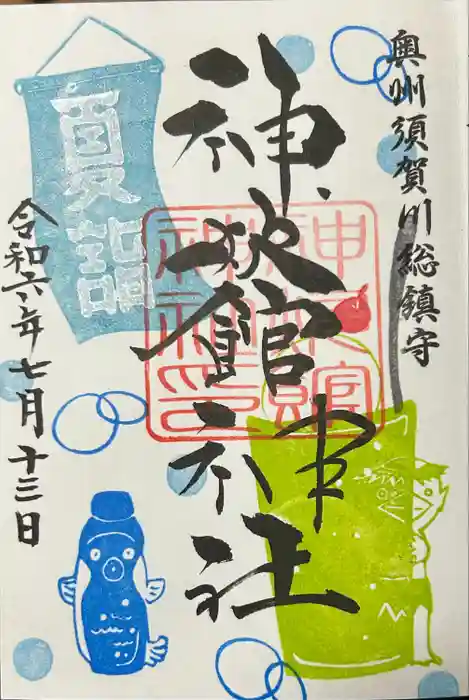 奥州須賀川総鎮守
神炊館神社
神炊館
神社印
夏詣
令和六年七月十三日